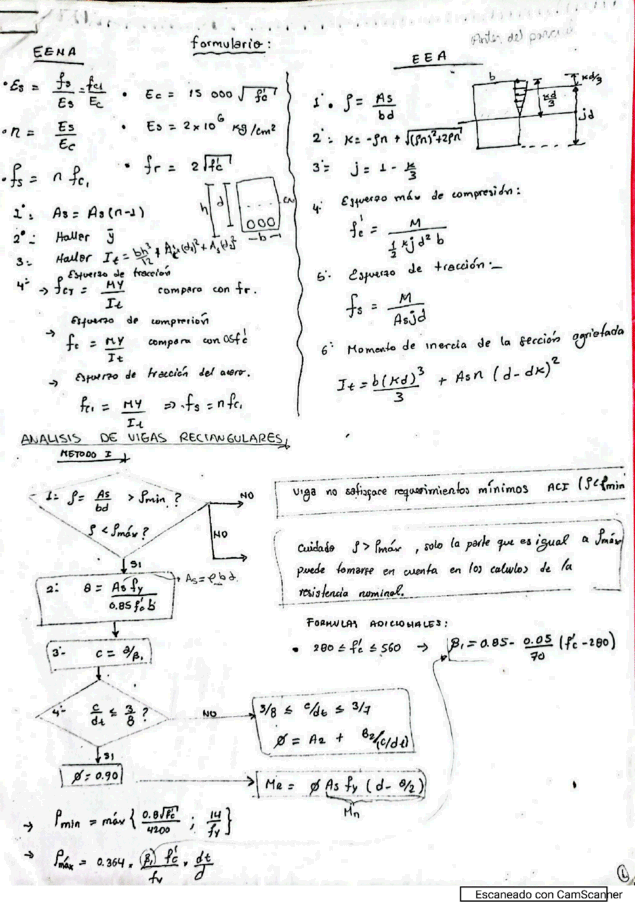 formulario:
EENA
• Es = fs/Es = fc1/Ec • Ec = 15 000 √f'c
• n = Es/Ec • Es = 2x10⁶ kg/cm²
• fs = n fc₁ • fr = 2√f'c
h d
b
1°: As = As(n-1)
2°: Hallar ȳ
3: Hallar It = bh³/12 +
Esfuerzo de tracción
4: → fct = MY/It compara con fr.
Esfuerzo de compresión
→ fc = MY/It compara con 05f'c
→ Esfuerzo de tracción del acero.
fc₁ = MY/It ⇒ fs = nfc₁
Antes del
EEA
b kd/3
kd/3
jd
1°. ρ = As/bd
2°: k = -ρn + √(ρn)²+2ρn
3: j = 1 - k/3
4. Esfuerzo máx de compresión:
f'c = M / ½ kjd²b
5. Esfuerzo de tracción:
fs = M/Asjd
6: Momento de inercia de la sección agrietada
It = b(kd)³/3 + Asn (d-dk)²
ANALISIS DE VIGAS RECTANGULARES
METODO I
1: ρ = As/bd > ρmin ?
ρ < ρmáx ?
NO
NO
Viga no satisface requerimientos mínimos ACI (ρ<ρmin
Cuidado ρ > ρmáx, solo la parte que es igual a ρmáx
puede tomarse en cuenta en los calculos de la
resistencia nominal.
SI
As = ρbd
2: a = As fy / 0.85 f'c b
FORMULAS ADICIONALES:
• 280 ≤ f'c ≤ 560 → β₁ = 0.85 - 0.05/70 (f'c - 280)
3- c = a/β₁
4- c/dt ≤ 3/8 ?
NO
3/8 ≤ c/dt ≤ 3/7
Ø = A2 + B2/(c/dt)
SI
Ø = 0.90
MR = Ø As fy (d - a/2)
Mn
→ ρmin = máx { 0.8√f'c/4200 ; 14/fy }
→ ρmáx = 0.364 * (β₁) f'c/fy * dt/d
1
Escaneado con CamScanner